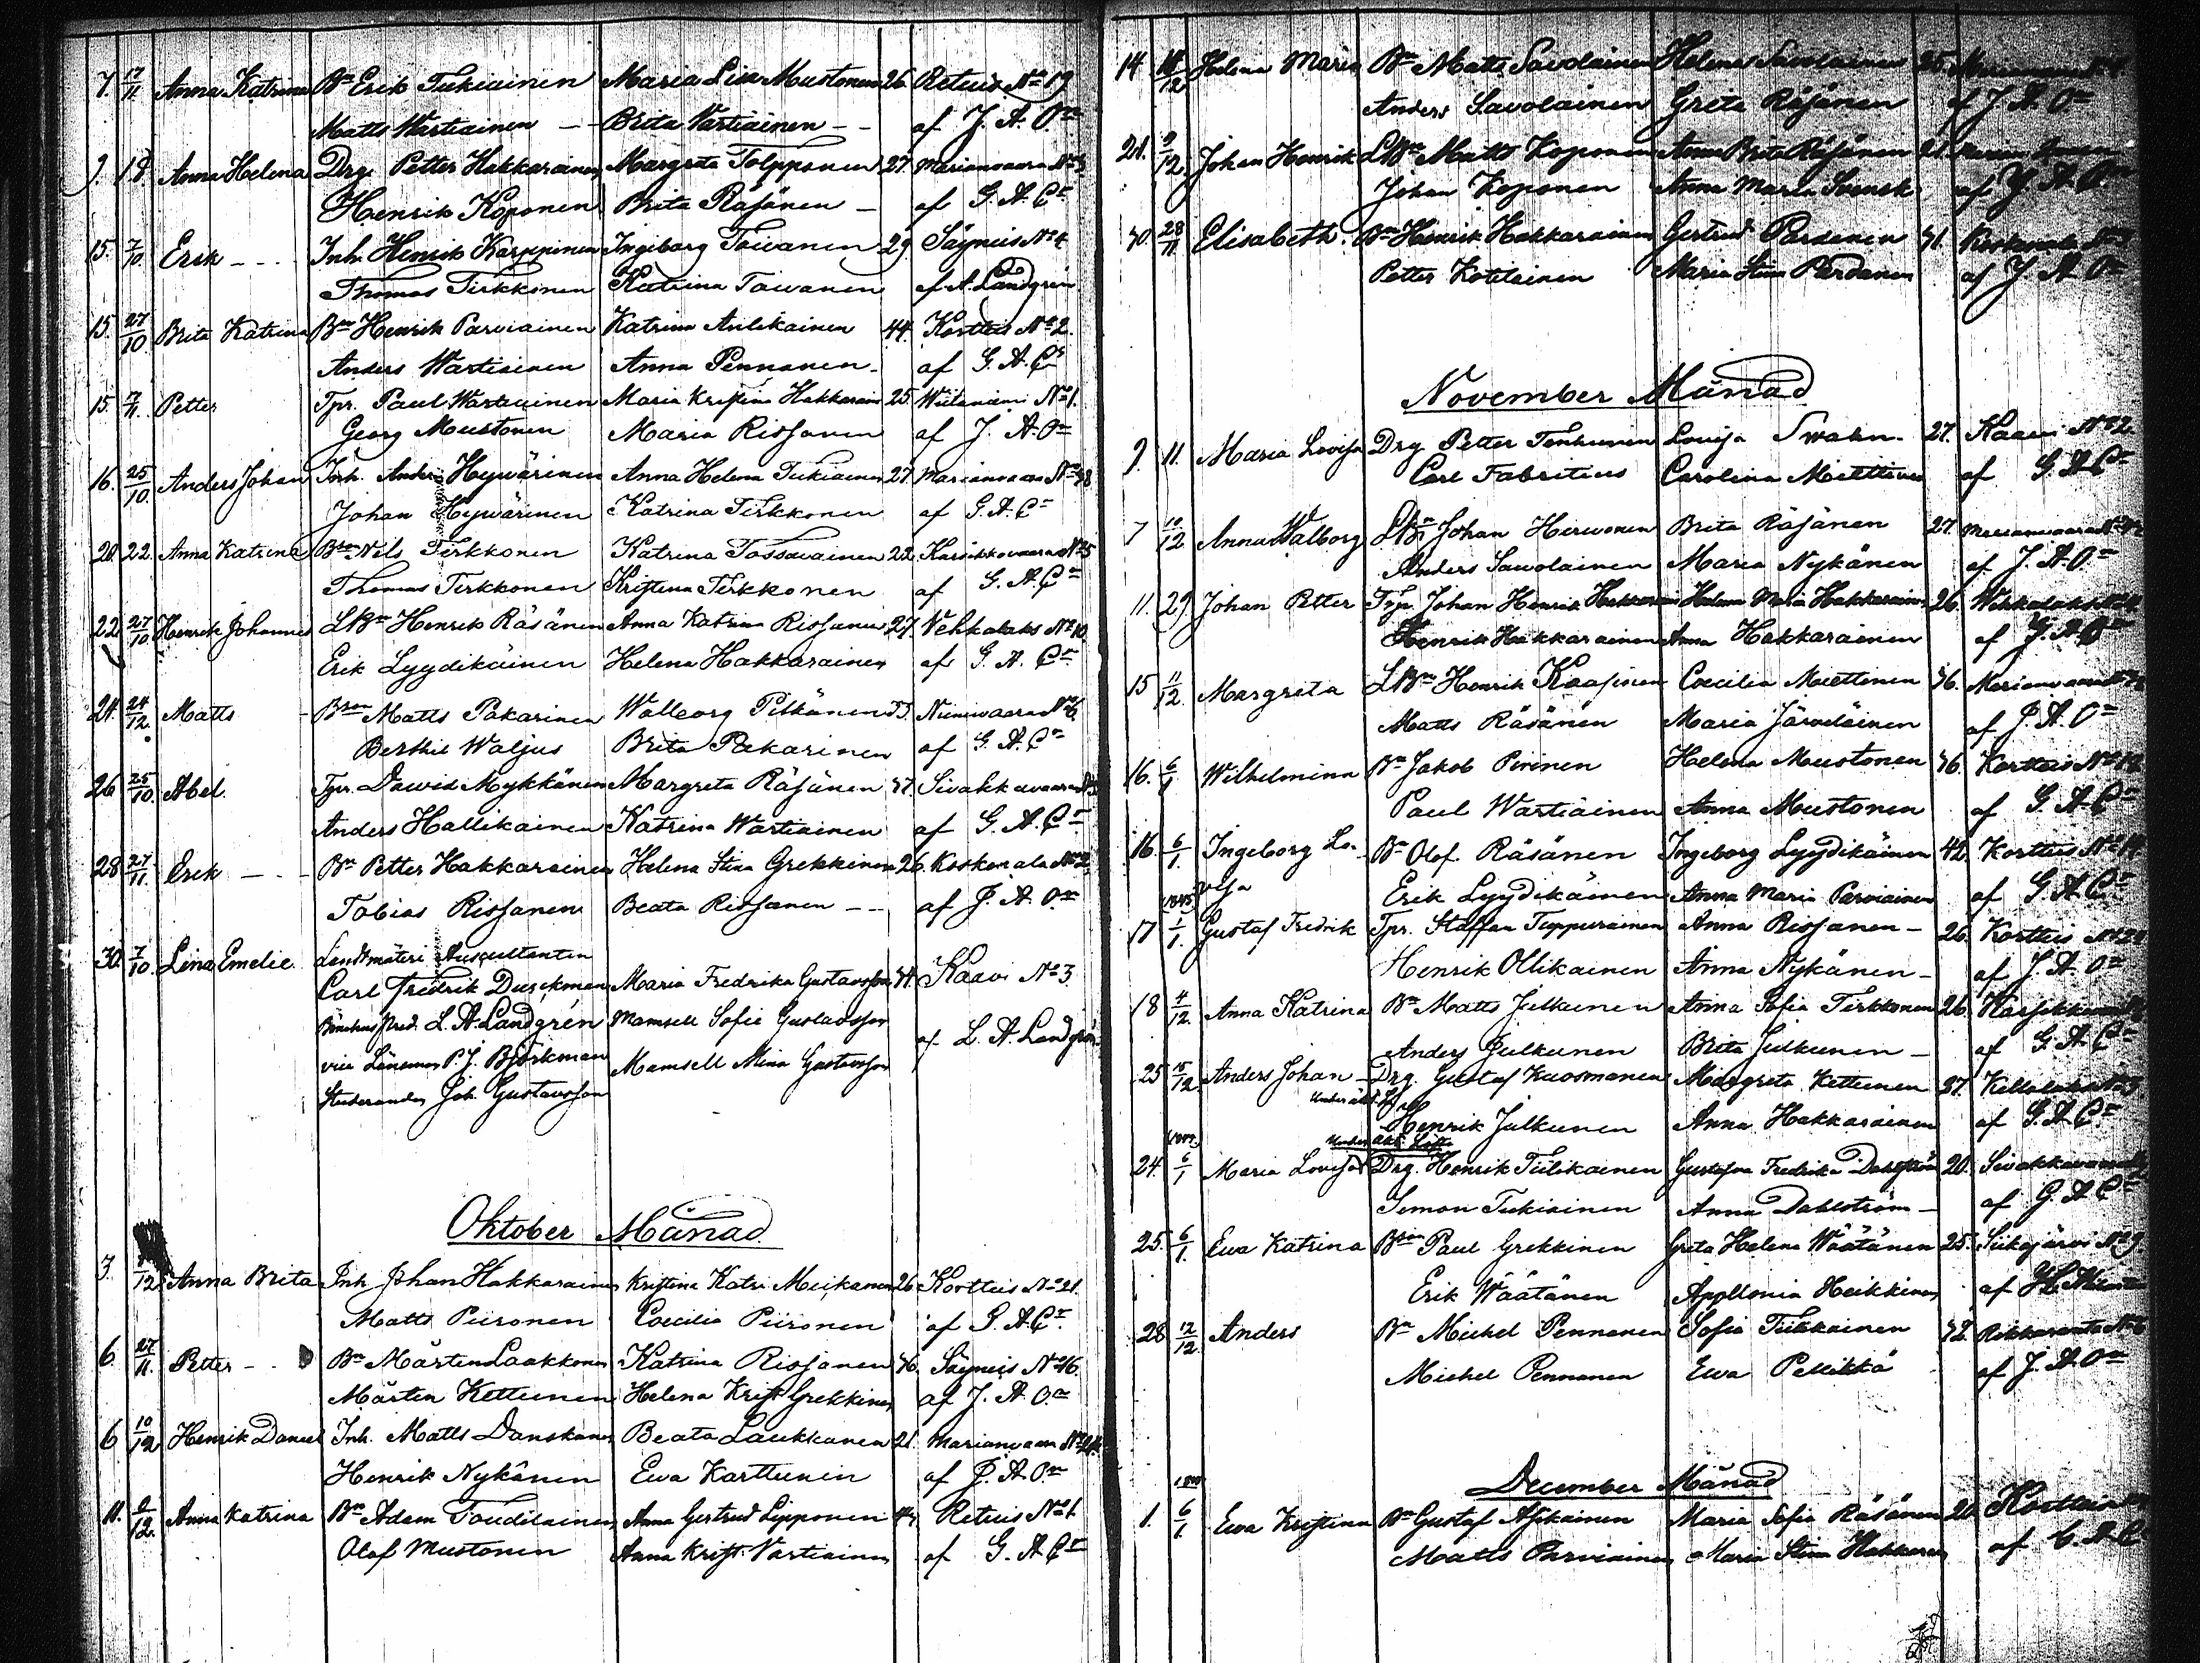 7. 17/11 Anna Katrina Bn Erik Tukiainen Maria Lisa Mustonen 26. Retuis No 19
Matts Wartiainen — Brita Vartiainen — af J. A. On
9. 18. Anna Helena Drg. Petter Hakkarainen Margreta Tolpponen 27. Marianvaara No
Henrik Koponen Brita Räsänen — af G. A. Cn
15. 7/10. Erik Inh. Henrik Karppinen Ingeborg Toivanen 29. Säyneis No 4
Thomas Tirkkonen Katrina Toivanen af A. Landgrén
15. 27/10 Brita Katrina Bn Henrik Parviainen Katrina Antikainen 44. Kortteis No 2.
Anders Wartiainen Anna Pennanen. af G. A. Cn
15. 17/11. Petter Tpr. Paul Wartiainen Maria Kristina Hakkarain 25. Wiitaniemi No 1.
Georg Mustonen Maria Rissanen af J. A. On
16. 25/10. Anders Johan Inh. Anders Hyvärinen Anna Helena Tukiainen 27. Marianvaara No 38
Johan Hyvärinen Katrina Tirkkonen af G. A. Cn
20. 22. Anna Katrina Bson Nils Tirkkonen Katrina Tossavainen 22. Karsikkovaara No 25
Thomas Tirkkonen Kristina Tirkkonen af G. A. Cn
22. 27/10 Henrik Johannes LBn Henrik Räsänen Anna Katrina Rissanen 27. Vehkalaks No 10.
Erik Lyydikäinen Helena Hakkarainen af G. A. Cn
24. 24/12. Matts Bson Matts Pakarinen Walborg Pitkänen 33. Niinivaara No 6.
Berthil Waljus Brita Pakarinen af G. A. Cn
26 25/10. Abel. Tpr. Dawid Mykkänen Margreta Räsänen 37. Sivakkavaara No
Anders Hallikainen Katrina Wartiainen af G. A. Cn
28 27/11. Erik Bn Petter Hakkarainen Helena Stina Grekkinen 26. Koskenala No 2.
Tobias Rissanen Beata Rissanen — af J. A. On
30. 7/10. Lina Emelie. Landtmäteri Auscultanten
Carl Fredrik Dunckman Maria Fredrika Gustavsson 34. Kaavi No 3
Bönehus Pred. L. A. Landgrén Mamsell Sofie Gustavsson af L. A. Landgrén
vice Länsman P. J. Björkman Mamsell Mina Gustavsson
Studeranden Joh. Gustavsson
Oktober Månad
3. /12. Anna Brita Inh. Johan Hakkarainen Kristina Katr. Meikanen 26. Kortteis No 21.
Matts Piironen Coecilia Piironen af G. A. Cn.
6. 27/11. Petter Bn Mårten Laakkonen Katrina Rissanen 36. Säyneis No 16.
Mårten Kettunen Helena Krist. Grekkinen af J. A. On
6 10/12 Henrik Daniel Inh. Matts Danskanen Beata Laukkanen 21. Marianvaara No 24.
Henrik Nykänen Ewa Karttunen af J. A. On
11. 9/12. Anna Katrina Bn Adam Toudilainen Anna Gertrud Lipponen Retuis No 1.
Olof Mustonen Anna Krist. Vartiainen af G. A. Cn
14 /12 Helena Maria Bn Matts Savolainen Helena Savolainen 25.
Anders Savolainen Greta Räsänen af J. A. On
21. 9/12. Johan Henrik LBn Matts Koponen Anna Brita Räsänen
Johan Koponen Anna Maria Svensk af J. A. On
30. 28/11 Elisabeth. Bn Henrik Hakkarainen Gertrud Pardanen 31. Koskenala No
Petter Kotilainen Maria Stina Pardanen af J. A. On
November Månad
9. 11. Maria Lovisa Drg Petter Tenhunen Lovisa Swahn. 27. Kaavi No 2.
Carl Fabritius Carolina Miettinen af G. A. Cn
7 10/12 Anna Walborg LBn Johan Hirvonen Brita Räsänen 27. Marianvaara No
Anders Savolainen Maria Nykänen af J. A. On
11. 29. Johan Petter Tpr. Johan Henrik Hakkarain Helena Maria Hakkarainen 26. Wehkalaks No
Henrik Hakkarainen Anna Hakkarainen af J. A. On
15 11/12. Margreta LBn Henrik Kaasinen Coecilia Miettinen 36. Marianvaara No
Matts Räsänen Maria Järveläinen af J. A. On
16. 6/1 Wilhelmina Bn Jakob Pirinen Helena Mustonen 36. Kortteis No 18
Paul Wartiainen Anna Mustonen af G. A. Cn
16. 6/1. Ingeborg Lo- Bn Olof. Räsänen Ingeborg Lyydikäinen 42. Kortteis No
visa Erik Lyydikäinen Anna Maria Parviainen af G. A. Cn
17 1/1. Gustaf Fredrik Tpr. Staffan Tuppurainen Anna Rissanen — 26. Kortteis No
Henrik Ollikainen Anna Nykänen — af J. A. On
18 4/12. Anna Katrina Bn Matts Julkunen Anna Sofia Tirkkonen 26.
Anders Julkunen Brita Julkunen — af G. A. Cn
25 15/12. Anders Johan Drg. Gustaf Kuosmanen Margreta Kettunen 27.
Henrik Julkunen Anna Hakkarainen af G. A. Cn
24. 6/1 Maria Lovisa Drg. Henrik Tiilikainen Gustafva Fredrika Dahlström 20. Sivakkavaara
Simon Tukiainen Anna Dahlström — af G. A. Cn
25. 6/1. Ewa Katrina Bson Paul Grekkinen Greta Helena Wäätänen 25. Siikajärvi No 9.
Erik Wäätänen Apollonia Heikkinen af
28 12/12. Anders Bn Michel Pennanen Sofia Tiikkainen 32. Rikkaranta No
Michel Pennanen Ewa Pellikkä af J. A. On
December Månad
1. 6/1 Ewa Kristina Bn Gustaf Asikainen Maria Sofia Räsänen 20 Kortteis
Matts Parviainen Maria Stina Hakkarain af G. A. C